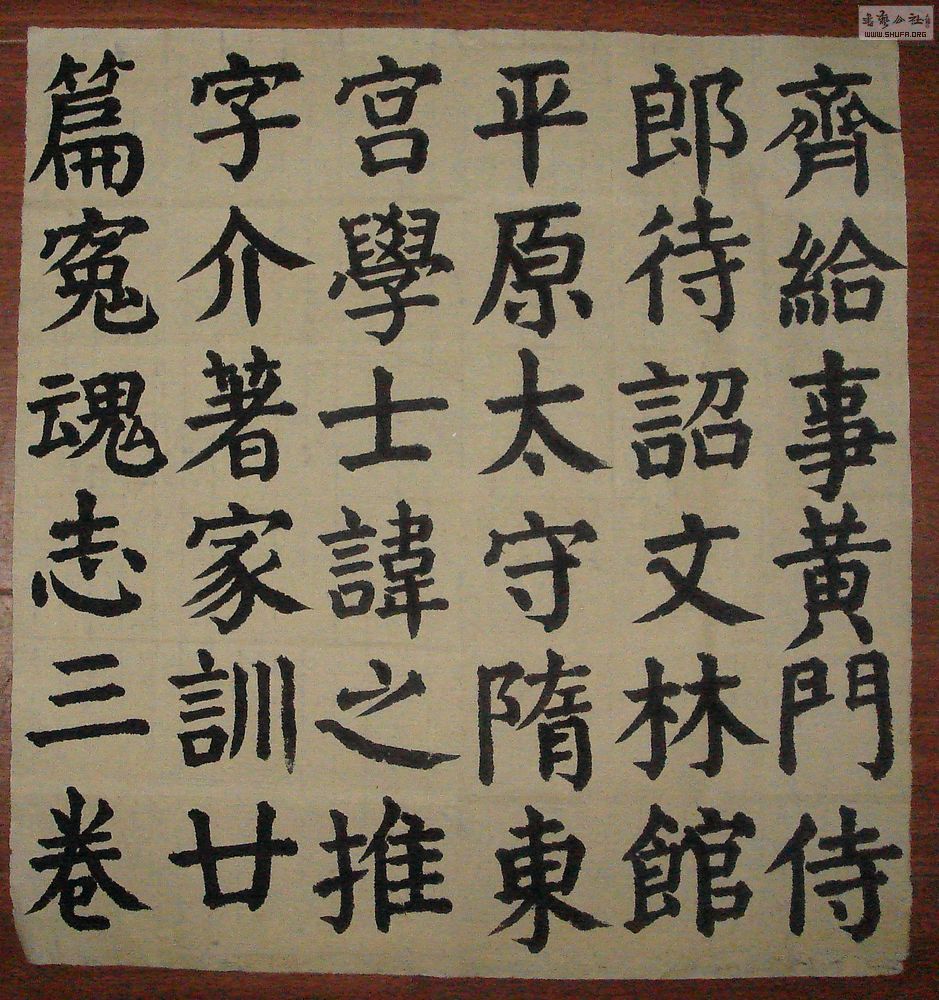 齊給事黃門侍
郎待詔文林館
平原太守隋東
宮學士諱之推
字介著家訓廿
篇寃魂志三卷
WWW.SHUFA.ORG